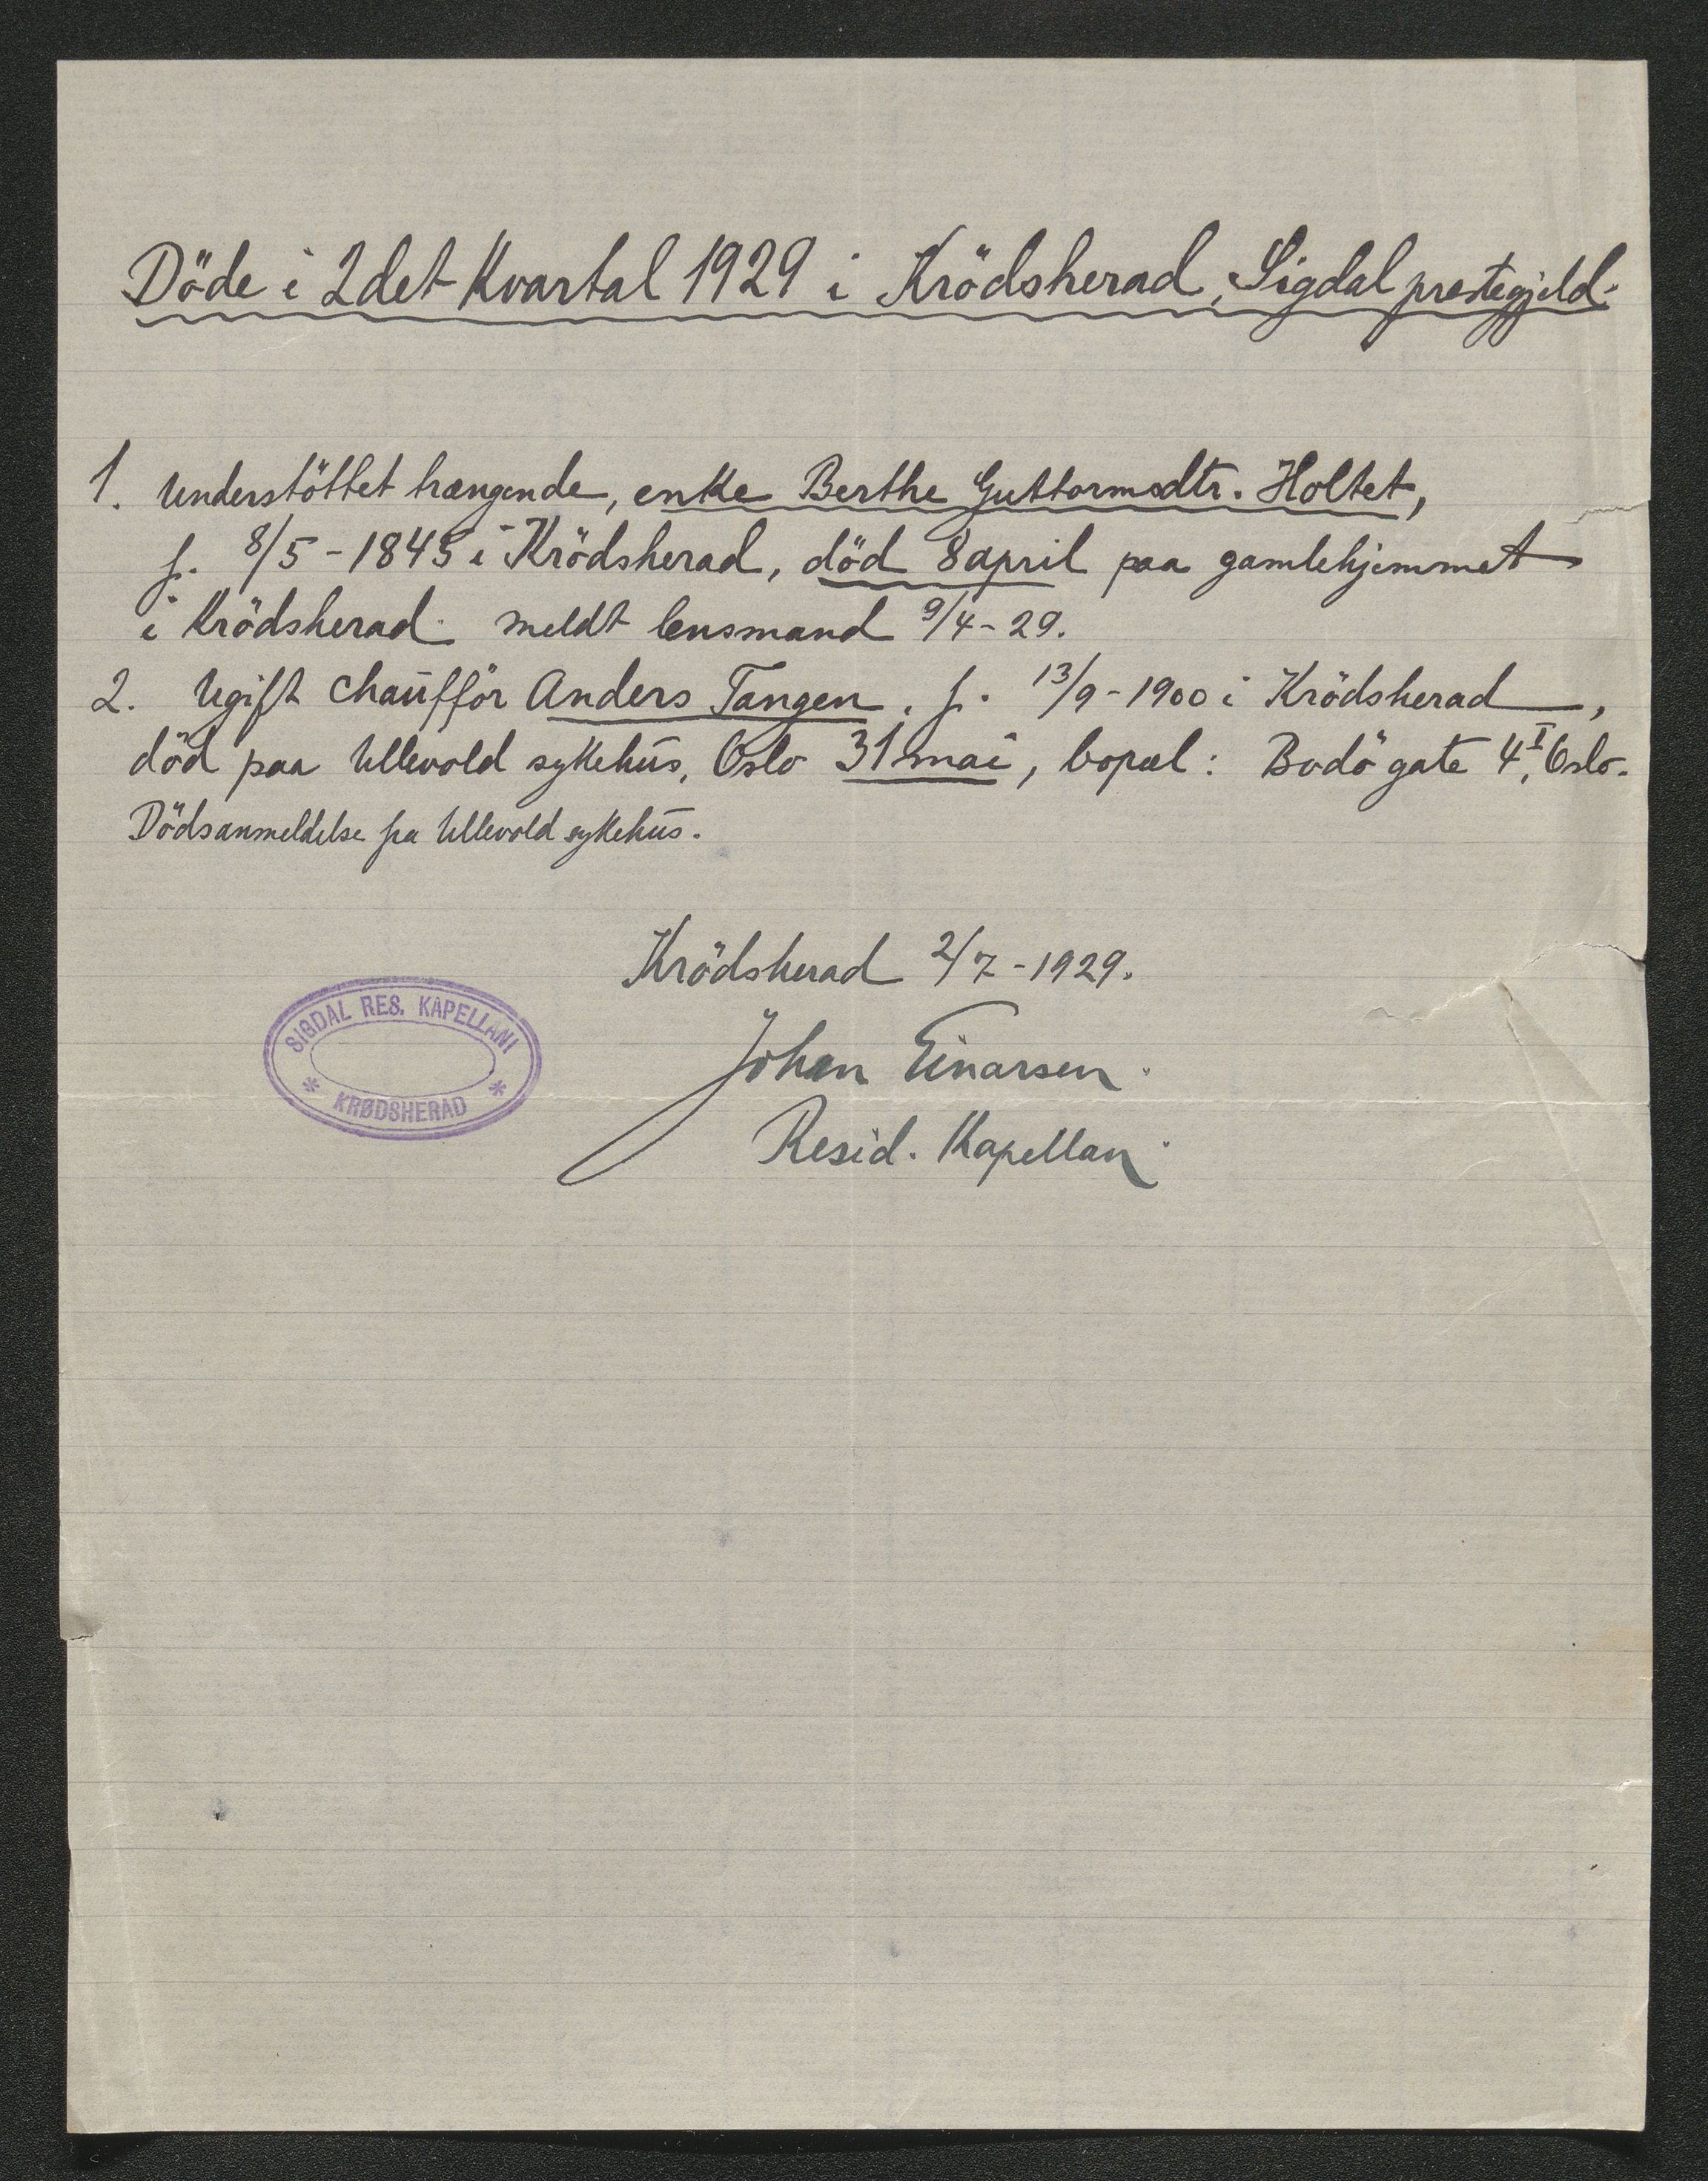 Döde i 2det Kvartal 1929 i Krödsherad, Sigdal prestegjeld.
1. Understöttet trængende, enke Berthe Guttormsdtr. Holtet,
f. 8/5 - 1845 i Krödsherad, död 8 april paa gamlehjemmet
i Krödsherad. meldt lensmand 9/4 - 29.
2. Ugift chaufför Anders Tangen. f. 13/9 - 1900 i Krödsherad,
död paa Ullevold sykehus, Oslo 31 mai, bopæl: Bodö gate 4 I, Oslo.
Dödsanmeldelse fra Ullevold sykehus.
Krödsherad 2/7 - 1929.
Johan Einarsen.
Resid. Kapellan.
SIGDAL RES. KAPELLANI
* KRØDSHERAD *